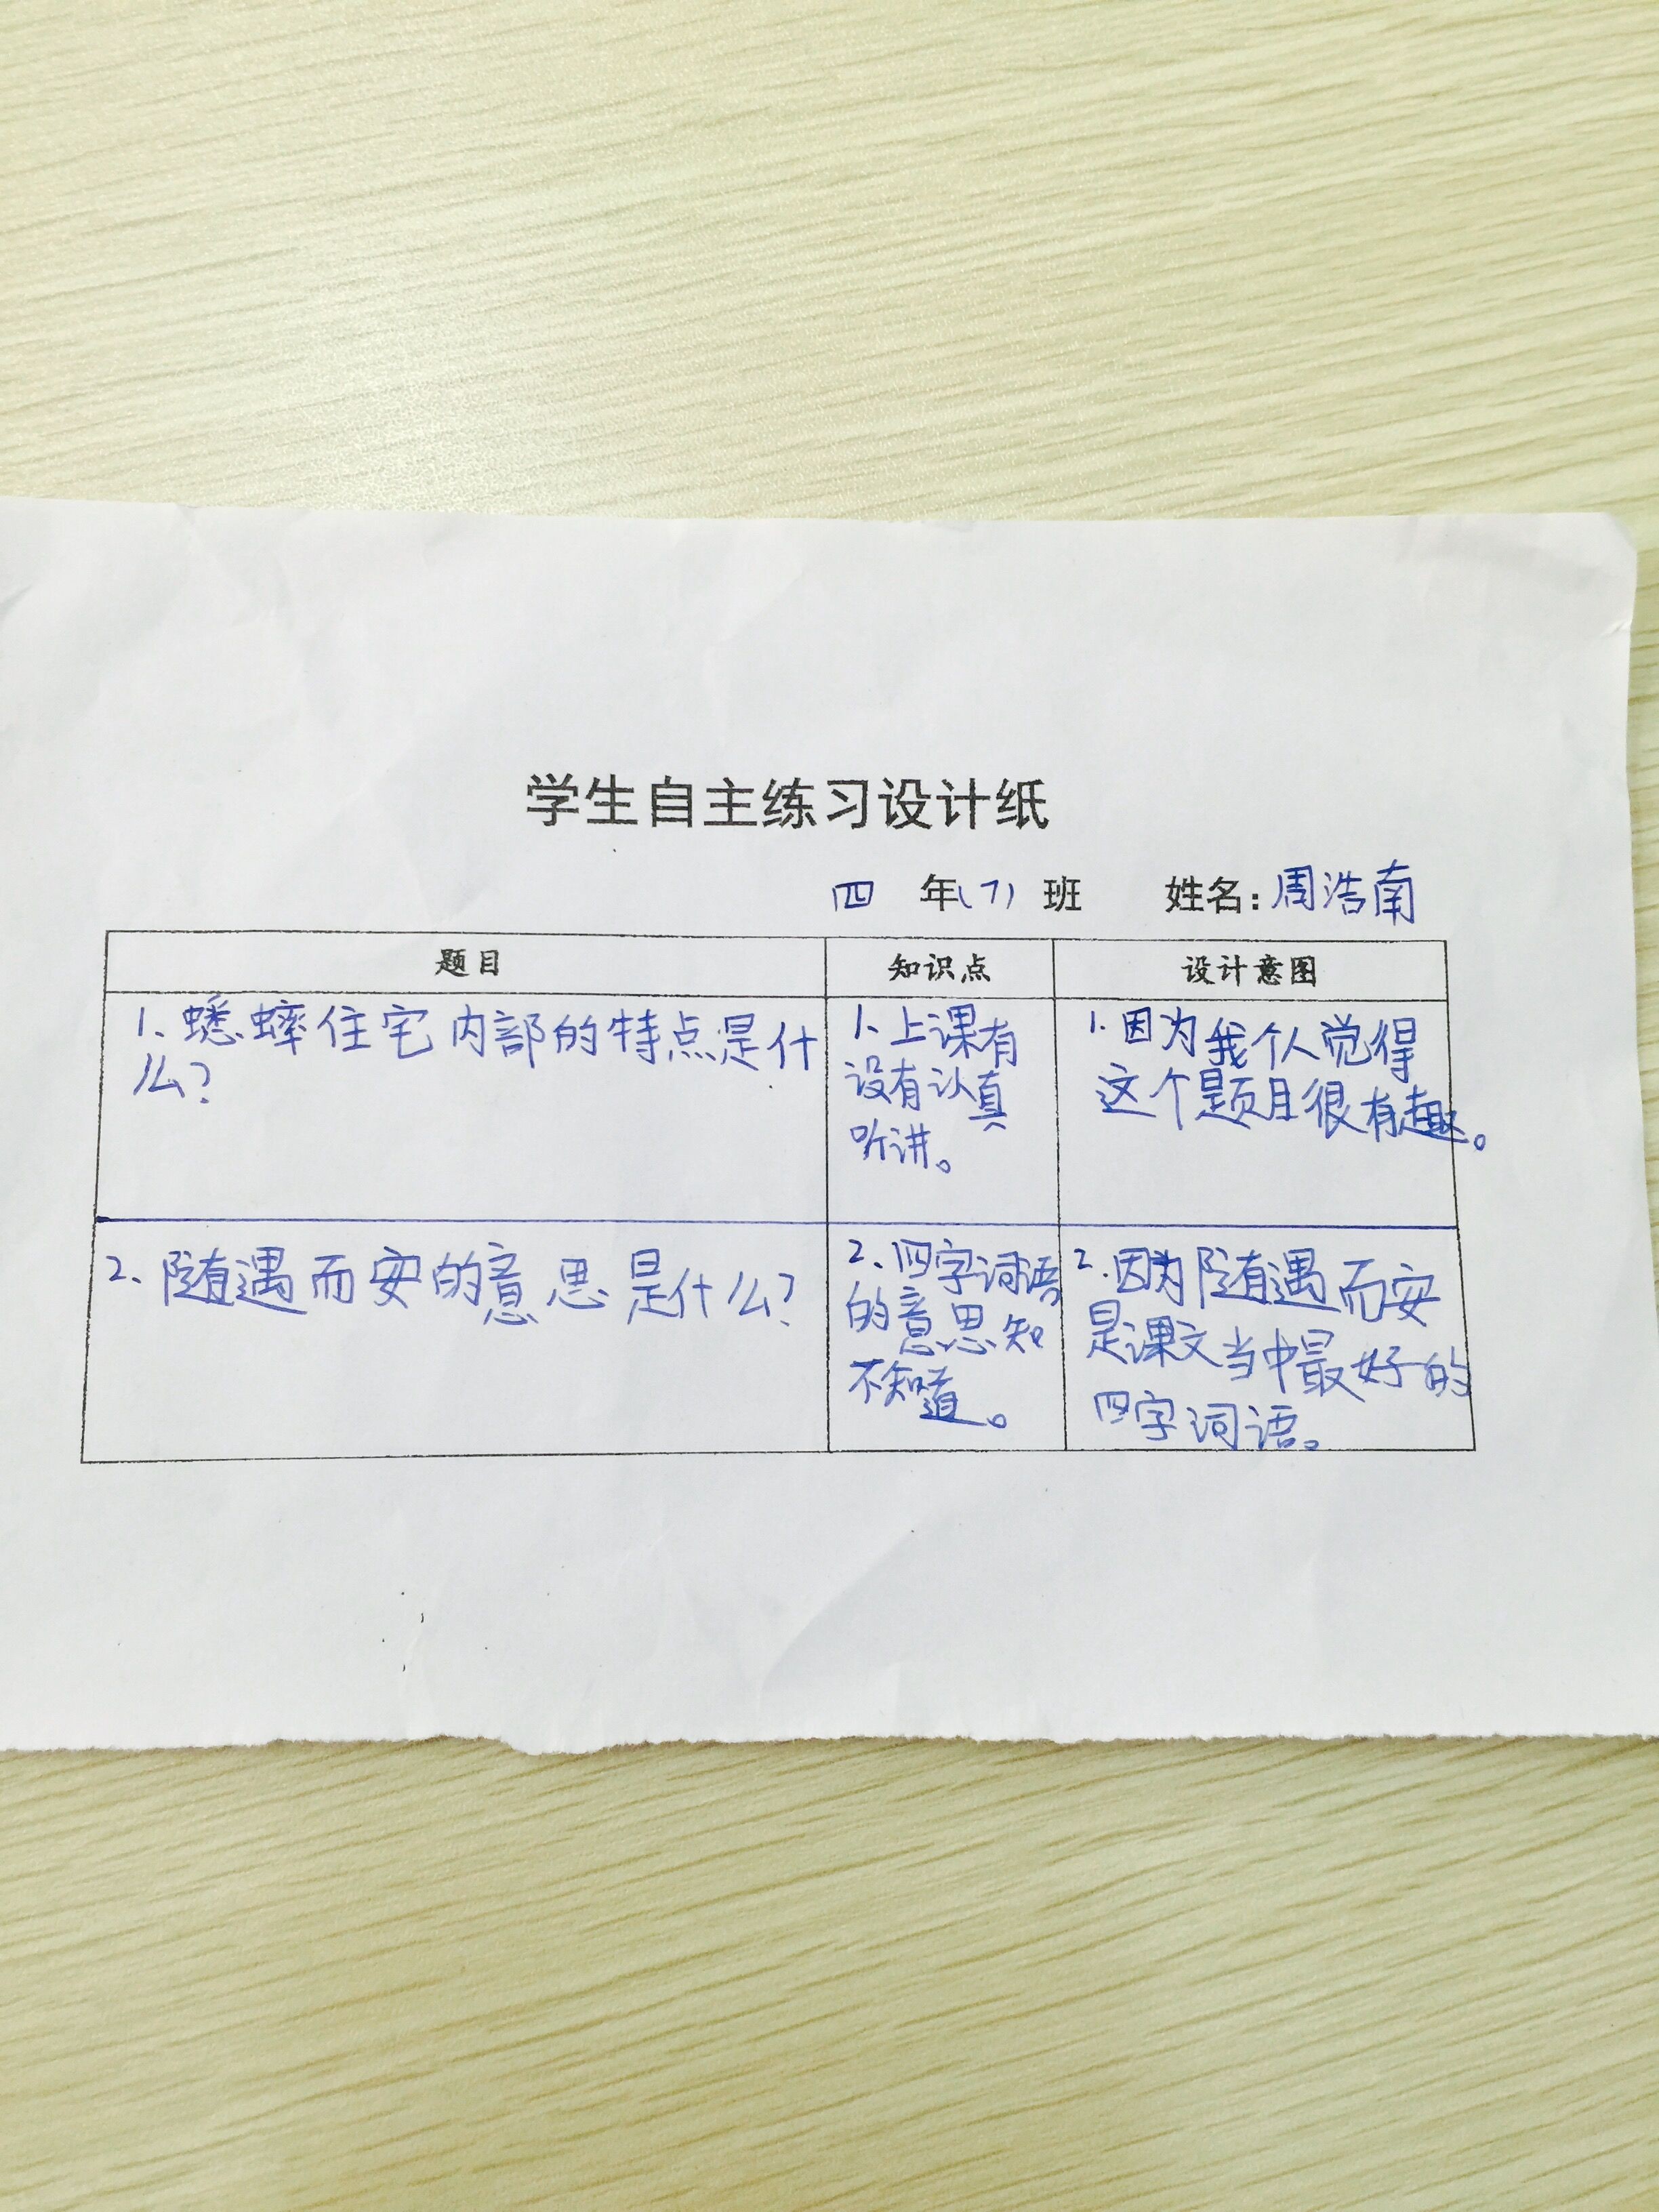 学生自主练习设计纸
四 年(7) 班 姓名:周浩南
题目 知识点 设计意图
1、蟋蟀住宅内部的特点是什
么?
1、上课有
没有认真
听讲。
1.因为我个人觉得
这个题目很有趣。
2、随遇而安的意思是什么?
2、四字词语
的意思知
不知道。
2.因为随遇而安
是课文当中最好的
四字词语。